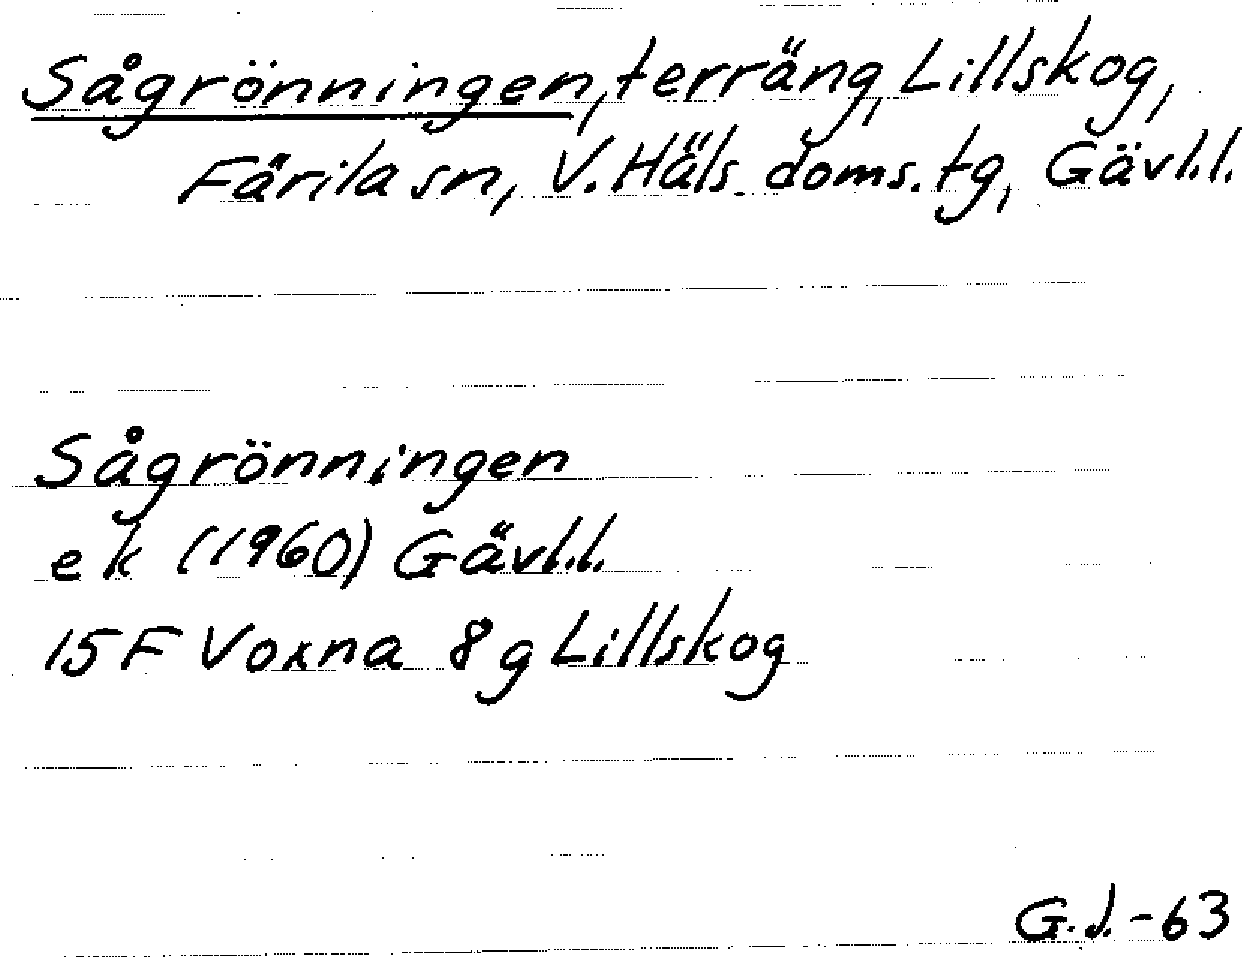 Sågrönningen, terräng, Lillskog,
Färila sn, V. Häls. doms. tg, Gävl.l.
Sågrönningen
ek (1960) Gävl.l.
15F Voxna 8g Lillskog
G.J.-63